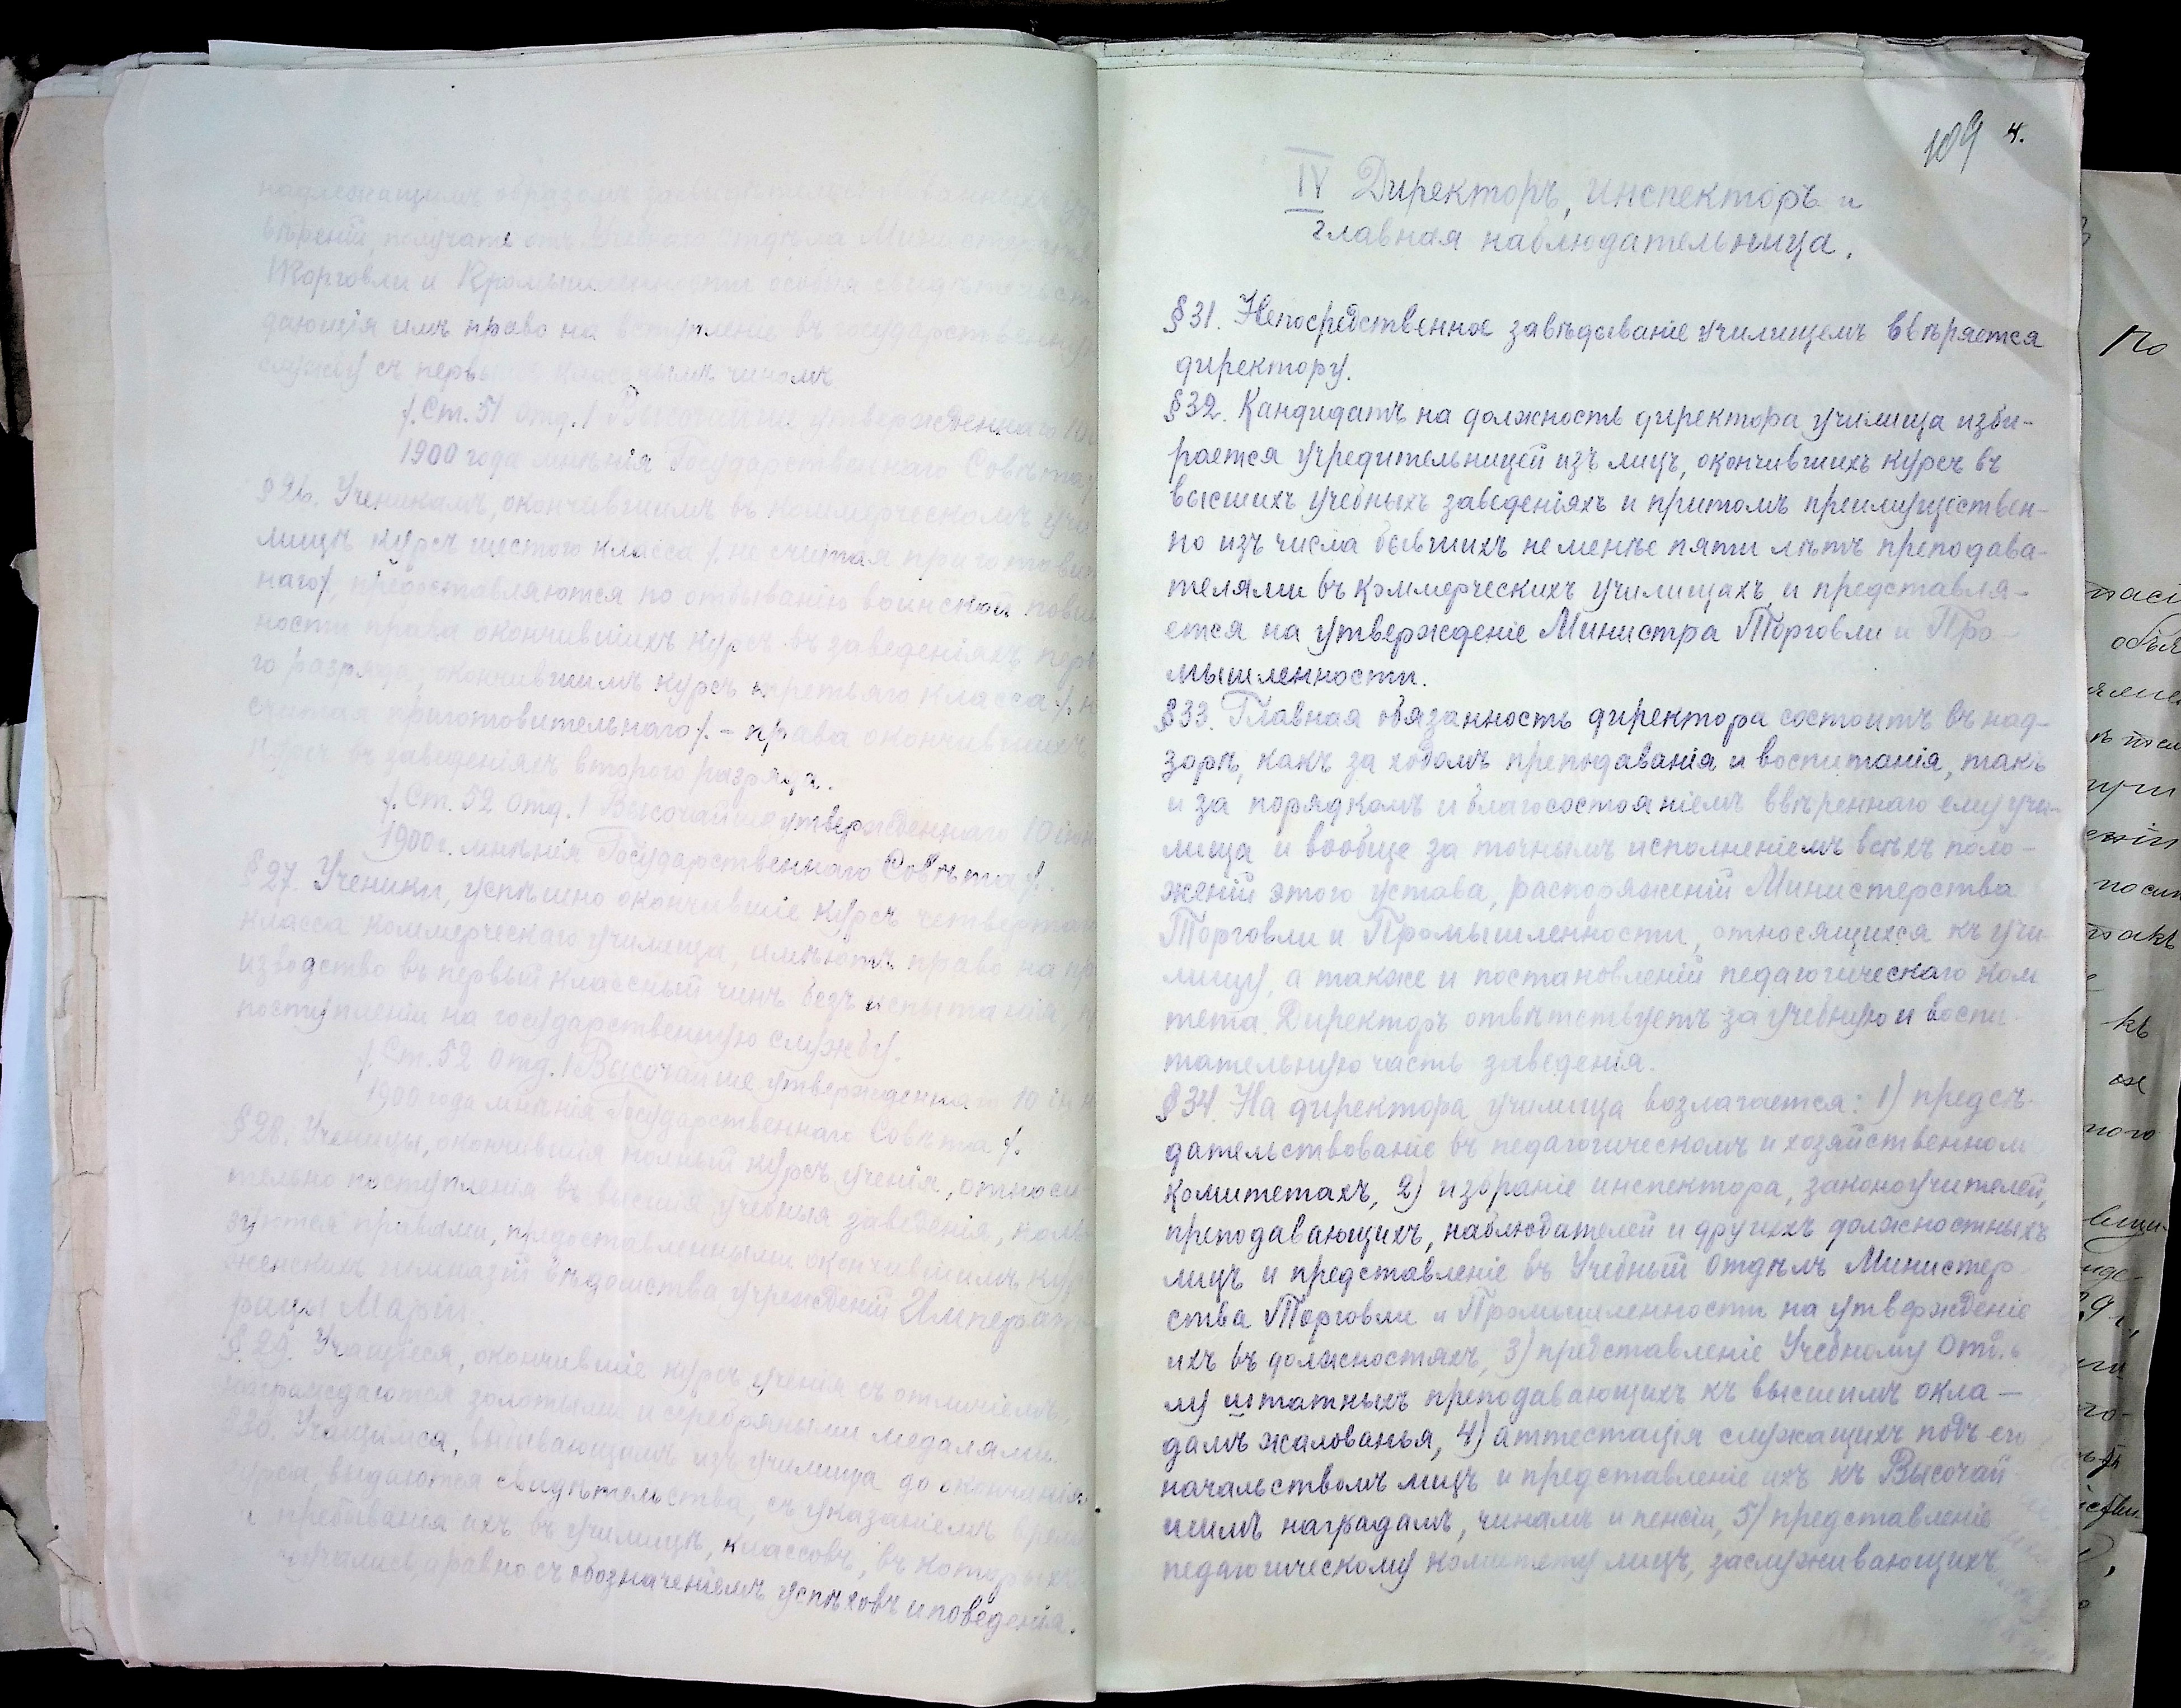 надлежащимъ образомъ
вѣреній, получать отъ Учебнаго Отдѣла Министерства
Торговли и Промышленности особыя свидѣтельст
дающія имъ право на вступленіе въ государственную
службу съ первымъ класснымъ чиномъ
/. Ст. 51 отд. I Высочайше утвержденнаго 10
1900 года мнѣнія Государственнаго Совѣта /.
§ 26. Ученикамъ, окончившимъ въ коммерческомъ учи
лищѣ курсъ шестого класса /. не считая приготовит
наго /, предоставляются по отбыванію воинской повин
ности права окончившихъ курсъ въ заведеніяхъ перв
го разряда, окончившимъ курсъ третьяго класса /. н
считая приготовительнаго /. - права окончившихъ
курсъ въ заведеніяхъ второго разряда.
/. Ст. 52 отд. I Высочайше утвержденнаго 10 іюн
1900 г. мнѣнія Государственнаго Совѣта /.
§ 27. Ученики, успѣшно окончившіе курсъ четвертаго
класса коммерческаго училища, имѣютъ право на пр
изводство въ первый классный чинъ безъ испытанія, п
поступленіи на государственную службу.
/. Ст. 52 отд. I Высочайше утвержденнаго 10 іюн
1900 года мнѣнія Государственнаго Совѣта /.
§ 28. Ученицы, окончившія полный курсъ ученія, относи
тельно поступленія въ высшія учебныя заведенія, поль
зуются правами, предоставленными окончившимъ кур
женскихъ гимназій вѣдомства учрежденій Императ
рицы Маріи.
§. 29. Учащіеся, окончившіе курсъ ученія съ отличіемъ,
награждаются золотыми и серебряными медалями.
§ 30. Учащимся, выбывающимъ изъ училища до окончанія
курса, выдаются свидѣтельства, съ указаніемъ врем
и пребыванія ихъ въ училищѣ, классовъ, въ которыхъ
обучались, а равно съ обозначеніемъ успѣховъ и поведенія.
109 4.
IV Директоръ, инспекторъ и
главная наблюдательница.
§ 31. Непосредственное завѣдываніе училищемъ ввѣряется
директору.
§ 32. Кандидатъ на должность директора училища изби-
рается учредительницей изъ лицъ, окончившихъ курсъ въ
высшихъ учебныхъ заведеніяхъ и притомъ преимуществен-
но изъ числа бывшихъ не менѣе пяти лѣтъ преподава-
телями въ коммерческихъ училищахъ, и представля-
ется на утвержденіе Министра Торговли и Про-
мышленности.
§ 33. Главная обязанность директора состоитъ въ над-
зорѣ, какъ за ходомъ преподаванія и воспитанія, такъ
и за порядкомъ и благосостояніемъ ввѣреннаго ему учи-
лища и вообще за точнымъ исполненіемъ всѣхъ поло-
женій этого устава, распоряженій Министерства
Торговли и Промышленности, относящихся къ учи-
лищу, а также и постановленій педагогическаго ком
тета. Директоръ отвѣтствуетъ за учебную и воспи-
тательную часть заведенія.
§ 34. На директора училища возлагается: 1) предсѣ-
дательствованіе въ педагогическомъ и хозяйственном
комитетахъ, 2) избраніе инспектора, законоучителей,
преподающихъ, наблюдателей и другихъ должностныхъ
лицъ и представленіе въ Учебный Отдѣлъ Министер
ства Торговли и Промышленности на утвержденіе
ихъ въ должностяхъ, 3) представленіе Учебному Отдѣ
лу штатныхъ преподавающихъ къ высшимъ окла-
дамъ жалованья, 4) аттестація служащихъ подъ его
начальствомъ лицъ и представленіе ихъ къ Высочай
шимъ наградамъ, чинамъ и пенсіи, 5) представленіе
педагогическому комитету лицъ, заслуживающихъ
По
такъ
къ